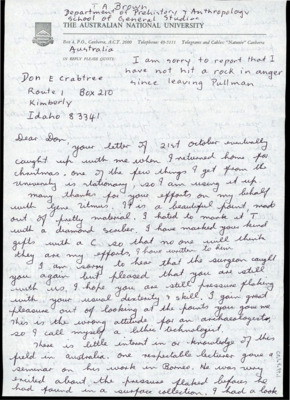 T.A. Brown
Department of Prehistory & Anthropology
School of General Studies
THE AUSTRALIAN NATIONAL UNIVERSITY
Box 4, P.O., Canberra, A.C.T. 2600 Telephone 49-5111 Telegrams and Cables: "Natuniv" Canberra
Australia
IN REPLY PLEASE QUOTE:
I am sorry to report that I
have not hit a rock in anger
since leaving Pullman
Don E Crabtree
Route 1 Box 210
Kimberly
Idaho 83341
Dear Don,
your letter of 21st October eventually
caught up with me when I returned home for
christmas. One of the few things I get from the
University is stationary, so I am using it up.
many thanks for your efforts on my behalf
with Gene Titmus. It is a beautiful point, made
out of pretty material. I hated to mark it T
with a diamond scriber. I have marked your kind
gifts with a C so that no one will think
they are my efforts,
I am sorry to hear that the surgeon caught
you again but pleased that you are still
with us. I hope you are still pressure flaking
with your usual dexterity & skill. I gain great
pleasure out of looking at the points you gave me.
This is the wrong attitude for an archaeologist,
so I call myself a lithic technologist.
There is little interest in or knowledge of this
field in australia. One respectable lecturer gave a
seminar on his work in Borneo. He was very
excited about the pressure flaked bifaces he
had found in a surface collection. I had a look